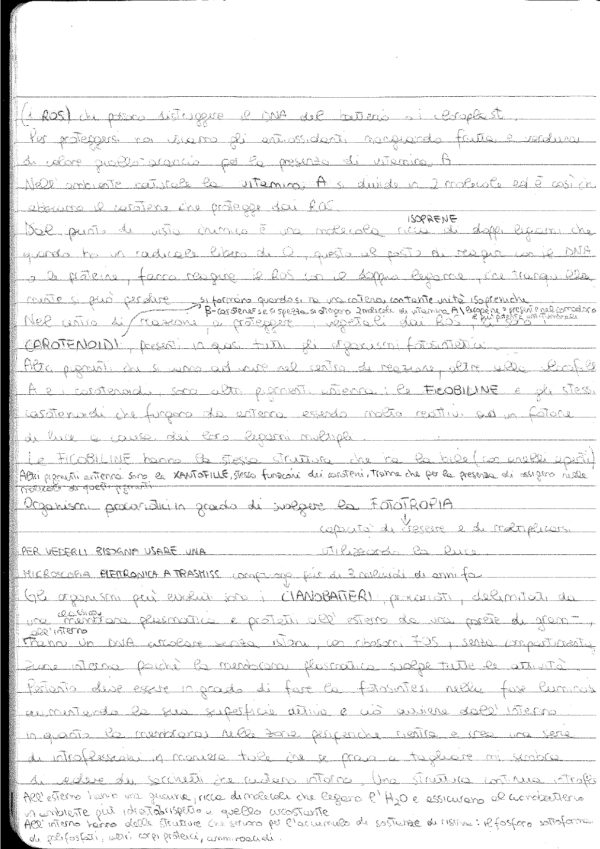 (: ROS) che possono distruggere il DNA del batterio o i cloroplasti.
Per proteggersi noi usiamo gli antiossidanti mangiando frutta e verdura
di colore giallo-arancio per la presenza di vitamina A
Nell'ambiente naturale la vitamina A si divide in 2 molecole ed è così che
il carotene che protegge dai ROS.
ISOPRENE
Dal punto di vista chimico è una molecola ricca di doppi legami che
quando ho un radicale libero di O, questo al posto di reagire con il DNA
o le proteine, farà reagire il ROS con il doppio legame, che tranquilla
mente si può perdere
si formano quando si ha una catena contenente unità isopreniche
B-carotene se si spezza si ottengono 2 molecole di vitamina A
Nel centro di reazione, a proteggere i vegetali dai ROS
CAROTENOIDI, presenti in quasi tutti gli organismi fotosintetici.
Altri pigmenti che si vanno ad unire nel centro di reazione, oltre alla clorofilla
A e i carotenoidi, sono altri pigmenti antenna: le FICOBILINE e gli stessi
carotenoidi che fungono da antenna essendo molto reattivi ad un fotone
di luce a causa dei loro legami multipli.
Le FICOBILINE hanno la stessa struttura che ha la bile (con anelli aperti)
Altri pigmenti antenna sono le XANTOFILLE, stesse funzioni dei caroteni. Tranne che per la presenza di ossigeno nelle
molecole di questi pigmenti
Organismi procarioti in grado di svolgere la FOTOTROFIA
capacità di crescere e di moltiplicarsi
PER VEDERLI BISOGNA USARE UNA
utilizzando la luce
MICROSCOPIA ELETTRONICA A TRASMISS. comparsa più di 3 miliardi di anni fa
Gli organismi più evoluti sono i CIANOBATTERI, procarioti, delimitati da
una membrana plasmatica e protetti all'esterno da una parete di gram -,
all'interno
hanno un DNA circolare senza istoni, con ribosomi 70S, senza compartimenta
zione interna poiché la membrana plasmatica svolge tutte le attività.
Pertanto deve essere in grado di fare la fotosintesi nella fase luminosa
aumentando la sua superficie attiva e ciò avviene dall'interno
in quanto la membrana nella zona periferiche rientra e crea una serie
di introflessioni in maniera tale che se provo a tagliare mi sembra
di vedere dei sacchetti che ruotano intorno. Una struttura continua
All'esterno hanno una guaina, ricca di molecole che legano l'H2O e assicurano al cianobatterio
un ambiente più idratato rispetto a quello circostante
All'interno hanno delle strutture che servono per l'accumulo di sostanze di riserva: il fosforo sottoforma
di polifosfati, altri corpi proteici, amminoacidi.